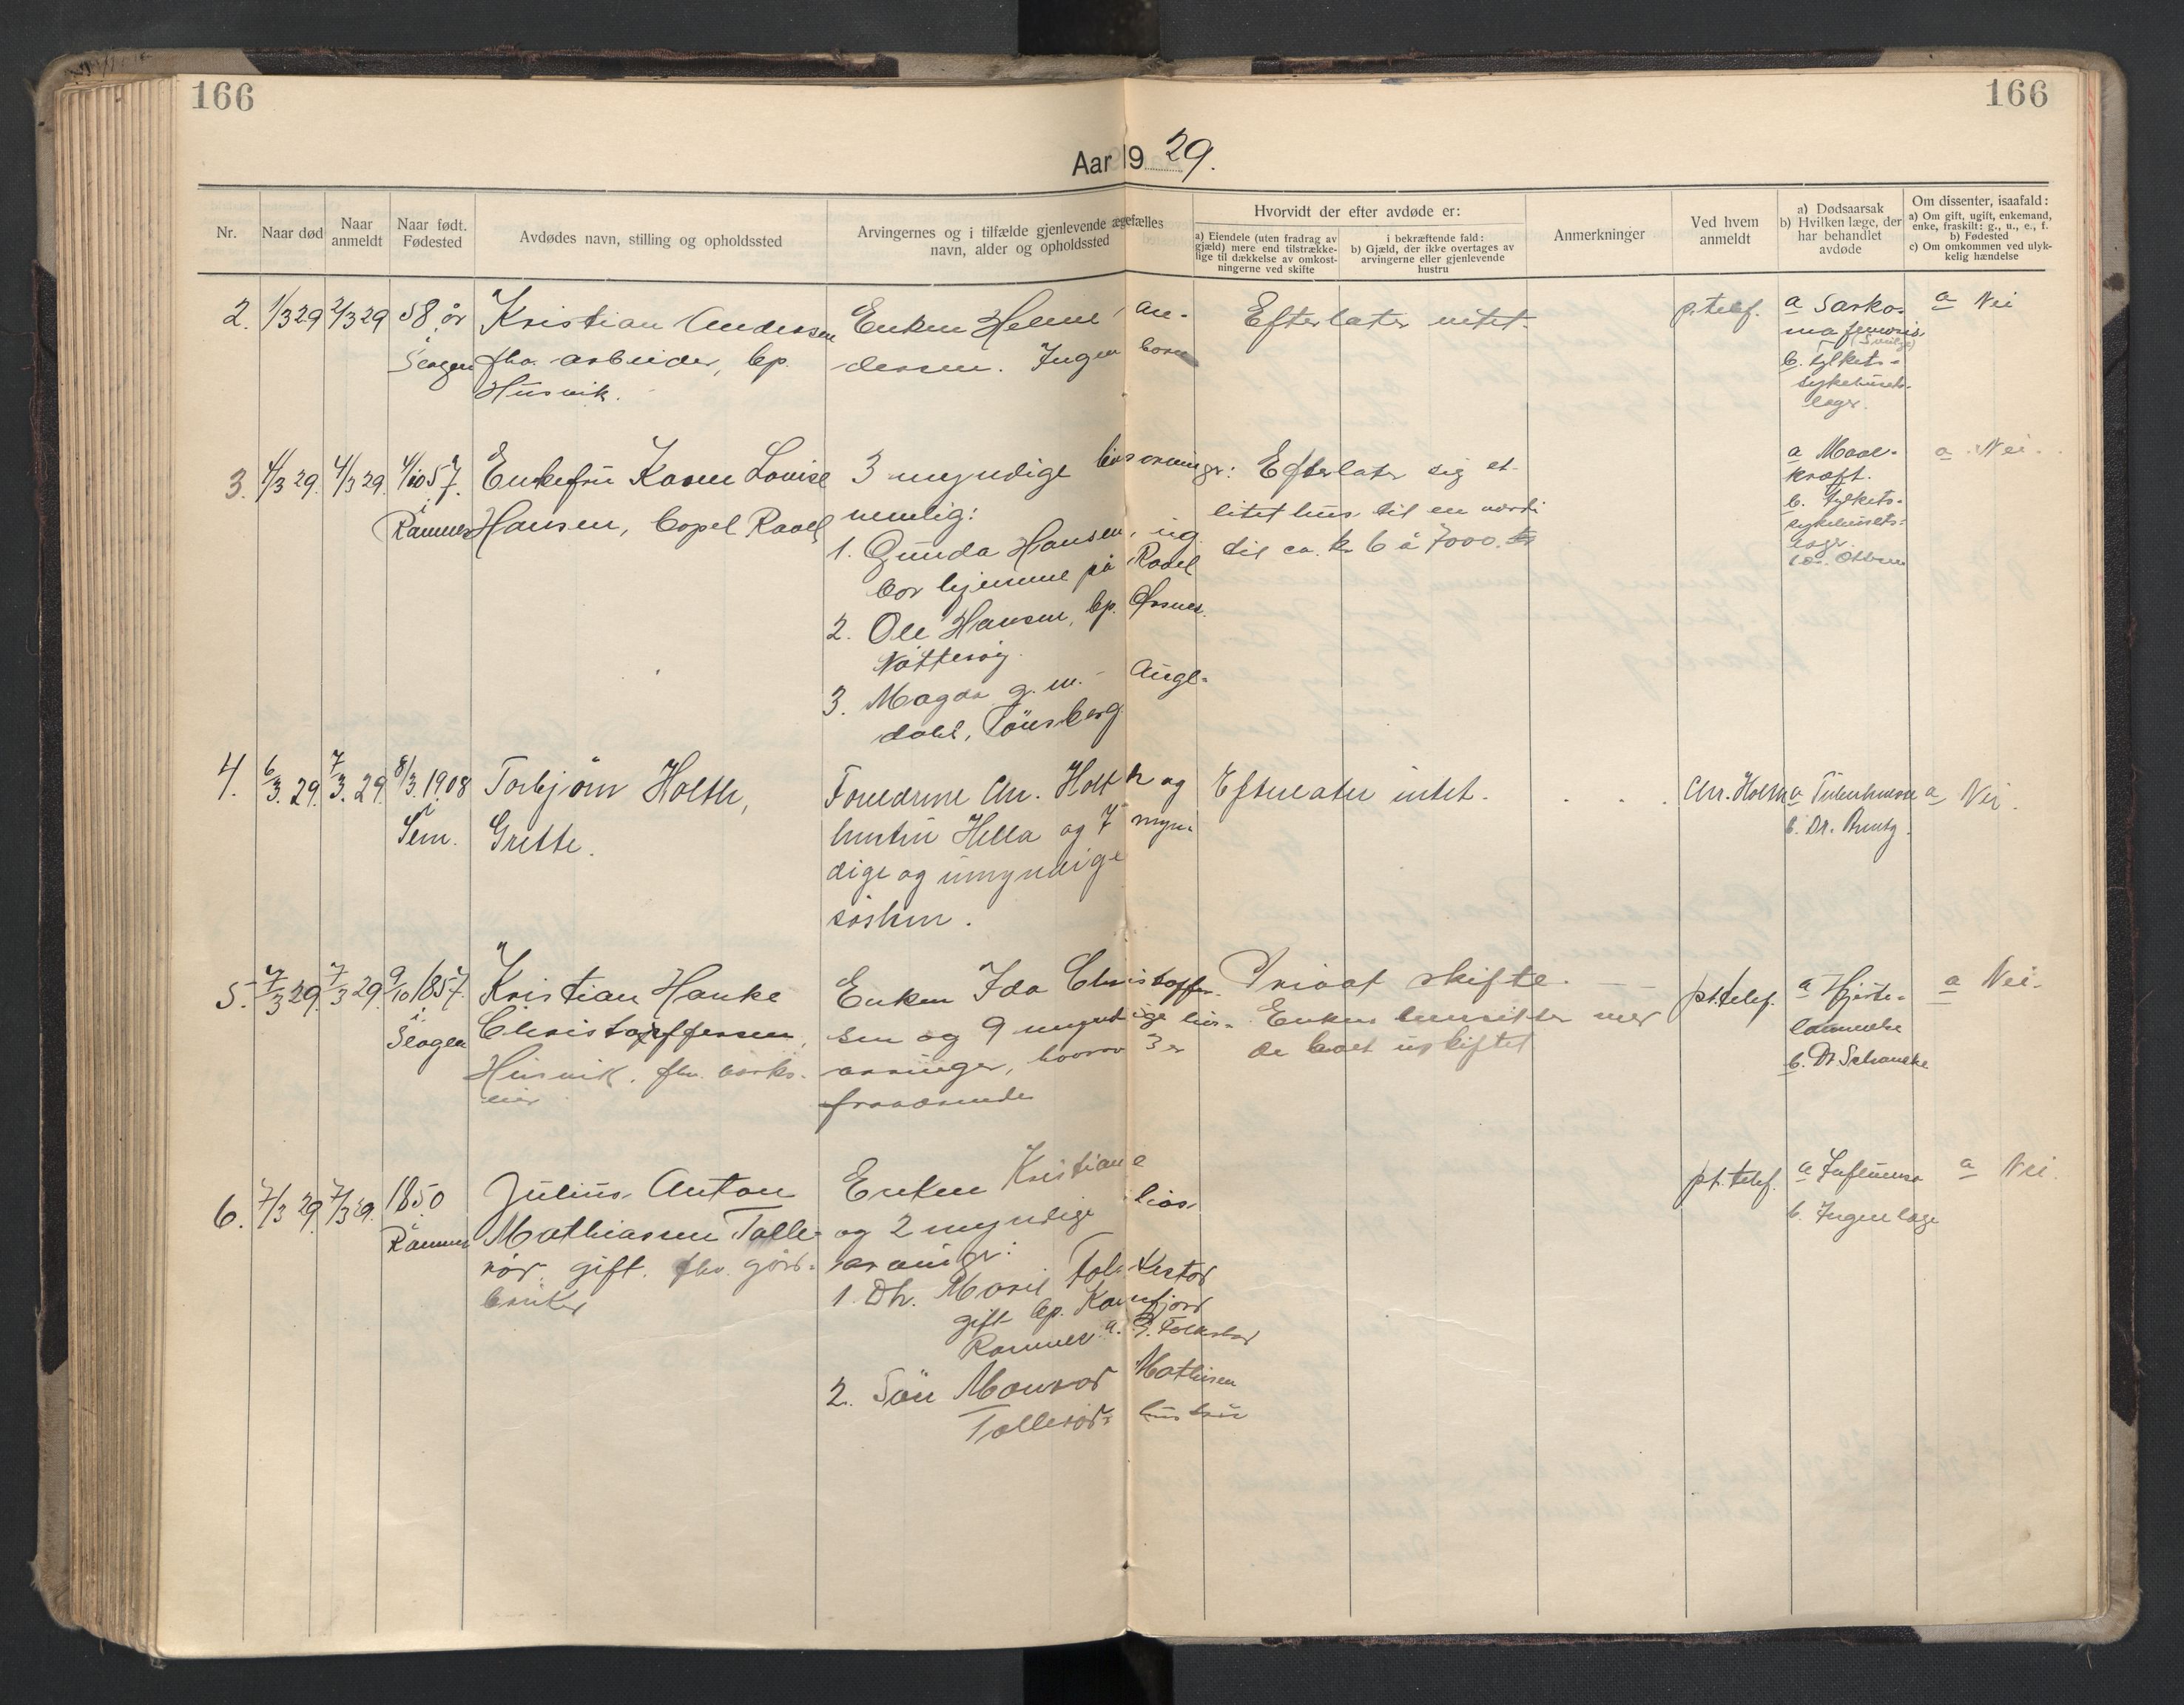 166
166
Aar 19 29.
Nr.
Naar død
Naar anmeldt
Naar født. Fødested
Avdødes navn, stilling og opholdssted
Arvingernes og i tilfælde gjenlevende ægefælles navn, alder og opholdssted
Hvorvidt der efter avdøde er:
a) Eiendele (uten fradrag av gjæld) mere end tilstrække-lige til dækkelse av omkost-ningerne ved skifte
i bekræftende fald:
b) Gjæld, der ikke overtages av arvingerne eller gjenlevende hustru
Anmerkninger
Ved hvem anmeldt
a) Dødsaarsak
b) Hvilken læge, der har behandlet avdøde
Om dissenter, isaafald:
a) Om gift, ugift, enkemand, enke, fraskilt: g., u., e., f.
b) Fødested
c) Om omkommen ved ulyk-kelig hændelse
2. 1/3 29 2/3 29 58 år
i Slagen
Kristian Andersen
fhv. arbeider, bp.
Husvik.
Enken Helene An-
dersen. Ingen barn
Efterlater intet.
p. telef.
a Sarko-
ma femoris
b. Fylkets-
sykehusets
læge.
a Nei
3. 4/3 29. 4/3 29. 4/10 57.
i Ramnes
Enkefru Karen Louise
Hansen, bopel Raael
3 myndige livsarvinger:
nemlig:
1. Gunda Hansen, ug.
bor hjemme på Raael
2. Ole Hansen, bp.
Nøtterøy
3. Magda g. m. - Augl-
dahl, Tønsberg
Efterlater sig et
litet hus til en værdi
til ca. kr 6 à 7000. kr
a Mave-
kræft.
b. Fylkets-
sykehusets-
læge.
a. Nei.
4. 6/3. 29. 7/3. 29. 8/3. 1908
i Sem.
Torbjørn Holth,
Grette.
Forældrene Chr. Holth og
hustru Hella og 7 myn-
dige og umyndige
søsken.
Efterlater intet.
Chr. Holth
a Tuberkulose
b. Dr.
a Nei.
5. 7/3 29. 7/3 29. 9/10 1857.
i Slagen
Kristian Hanke
Christoffersen,
Husvik. fhv. værks-
eier
Enken Ida Christoffer-
sen og 9 myndige livs-
arvinger, hvorav 3 er
fraværende
Privat skifte.
Enken hensitter med
de boet uskiftet
pr. telef.
a Hjerte-
lammelse
b. Dr Schanche
a Nei.
6. 7/3 29. 7/3 29. 1850
i Ramnes
Julius Anton
Mathiasen Tolle-
rød, gift. fhv. gård-
bruker
Enken Kristiane
og 2 myndige livs-
arvinger:
1. Dtr. Marie
gift bp.
Ramnes
2. Søn Manvar Mathisen
Tollerød,
pr. telef.
a Influensa
b. Ingen læge
a Nei.